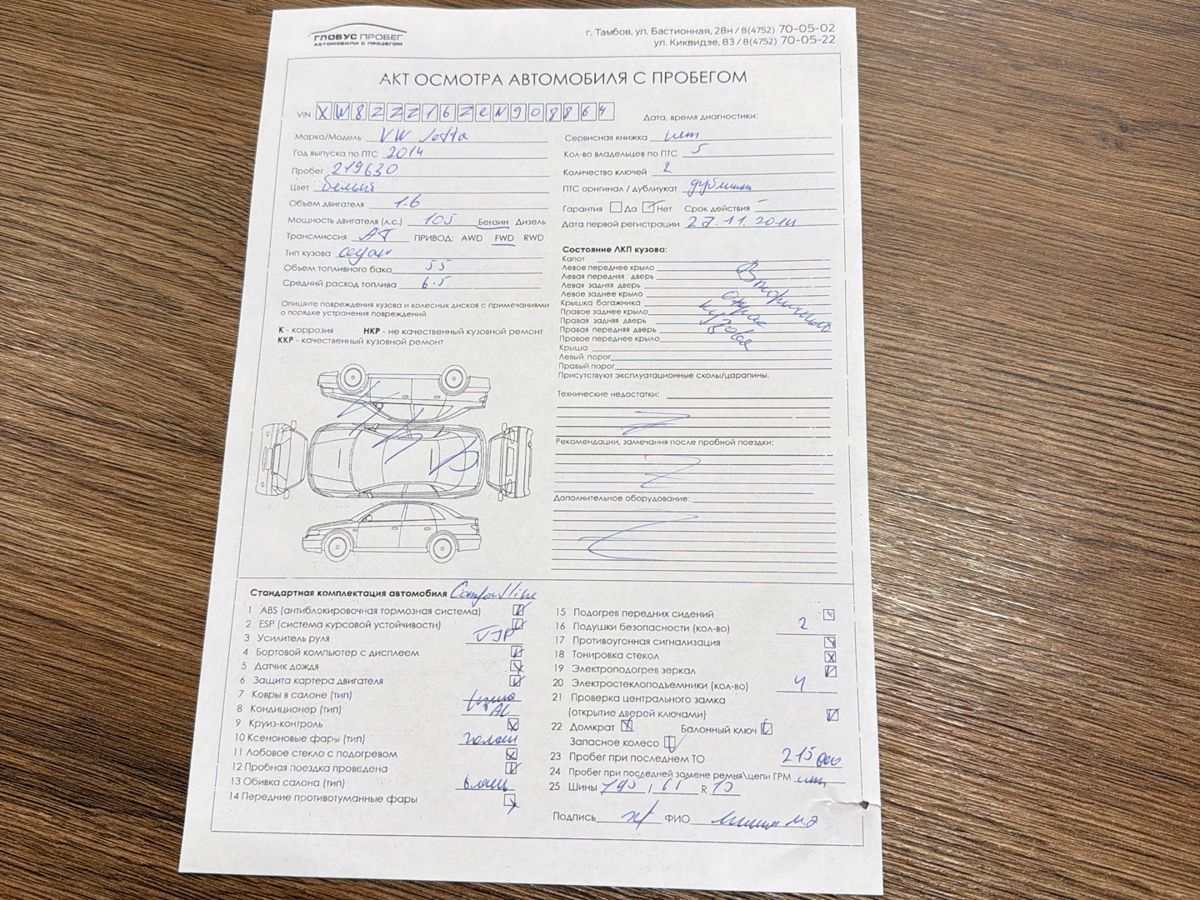 ГЛОБУС ПРОБЕГ
АВТОМОБИЛИ С ПРОБЕГОМ
г. Тамбов, ул. Бастионная, 28н / 8(4752) 70-05-02
ул. Киквидзе, 83 / 8(4752) 70-05-22
АКТ ОСМОТРА АВТОМОБИЛЯ С ПРОБЕГОМ
VIN XW8ZZZ16ZEN908864
Дата, время диагностики:
Марка/Модель VW Jetta
Год выпуска по ПТС 2014
Пробег 219630
Цвет белый
Объем двигателя 1.6
Мощность двигателя (л.с.) 105 Бензин Дизель
Трансмиссия АТ ПРИВОД: AWD FWD RWD
Тип кузова седан
Объем топливного бака 55
Средний расход топлива 6.5
Сервисная книжка нет
Кол-во владельцев по ПТС 5
Количество ключей 2
ПТС оригинал / дубликат дубликат
Гарантия Да Нет Срок действия –
Дата первой регистрации 27.11.2014
Опишите повреждения кузова и колесных дисков с примечаниями
о порядке устранения повреждений
К - коррозия НКР - не качественный кузовной ремонт
ККР - качественный кузовной ремонт
Состояние ЛКП кузова:
Капот
Левое переднее крыло
Левая передняя дверь
Левая задняя дверь
Левое заднее крыло
Крышка багажника
Правое заднее крыло
Правая задняя дверь
Правая передняя дверь
Правое переднее крыло
Крыша
Левый порог
Правый порог
Вторичный
окрас
кузова
Присутствуют эксплуатационные сколы/царапины.
Технические недостатки:
Рекомендации, замечания после пробной поездки:
Дополнительное оборудование:
Стандартная комплектация автомобиля Comfortline
1 ABS (антиблокировочная тормозная система)
2 ESP (система курсовой устойчивости)
3 Усилитель руля ГУР
4 Бортовой компьютер с дисплеем
5 Датчик дождя
6 Защита картера двигателя
7 Ковры в салоне (тип)
8 Кондиционер (тип) AC
9 Круиз-контроль
10 Ксеноновые фары (тип) галоген
11 Лобовое стекло с подогревом
12 Пробная поездка проведена
13 Обивка салона (тип)
14 Передние противотуманные фары
15 Подогрев передних сидений
16 Подушки безопасности (кол-во) 2
17 Противоугонная сигнализация
18 Тонировка стекол
19 Электроподогрев зеркал
20 Электростеклоподъемники (кол-во) 4
21 Проверка центрального замка
(открытие дверей ключами)
22 Домкрат Балонный ключ
Запасное колесо
23 Пробег при последнем ТО 215 000
24 Пробег при последней замене ремня\цепи ГРМ нет
25 Шины 195 / 65 R 15
Подпись ФИО